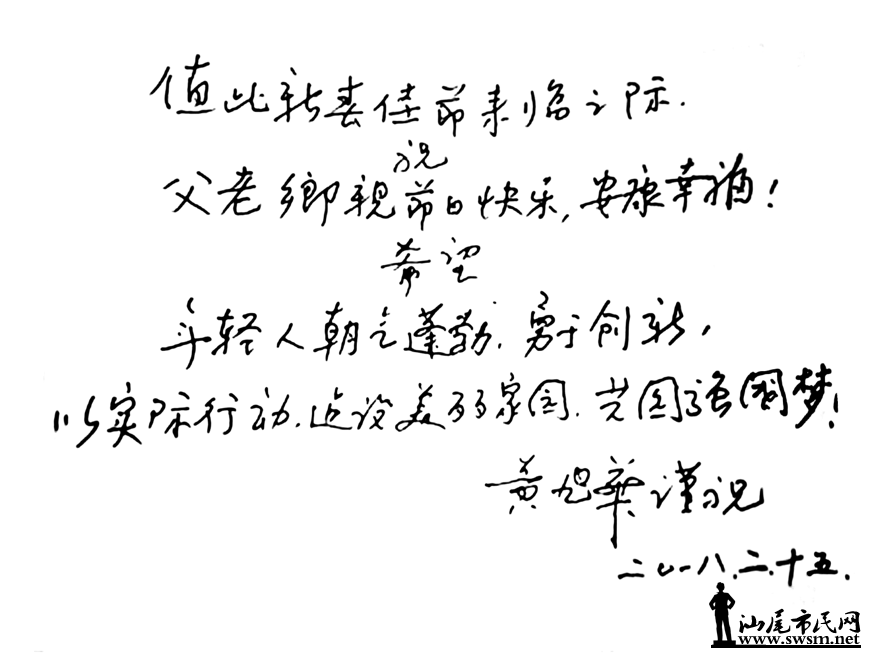 值此新春佳节来临之际.
祝
父老鄉亲节日快乐,安康幸福!
希望
年轻人朝气蓬勃.勇于创新,
以实际行动.建设美丽家园.共圆强国梦!
黄旭华谨祝
二〇一八.二.十五.
汕尾市民网
www.swsm.net